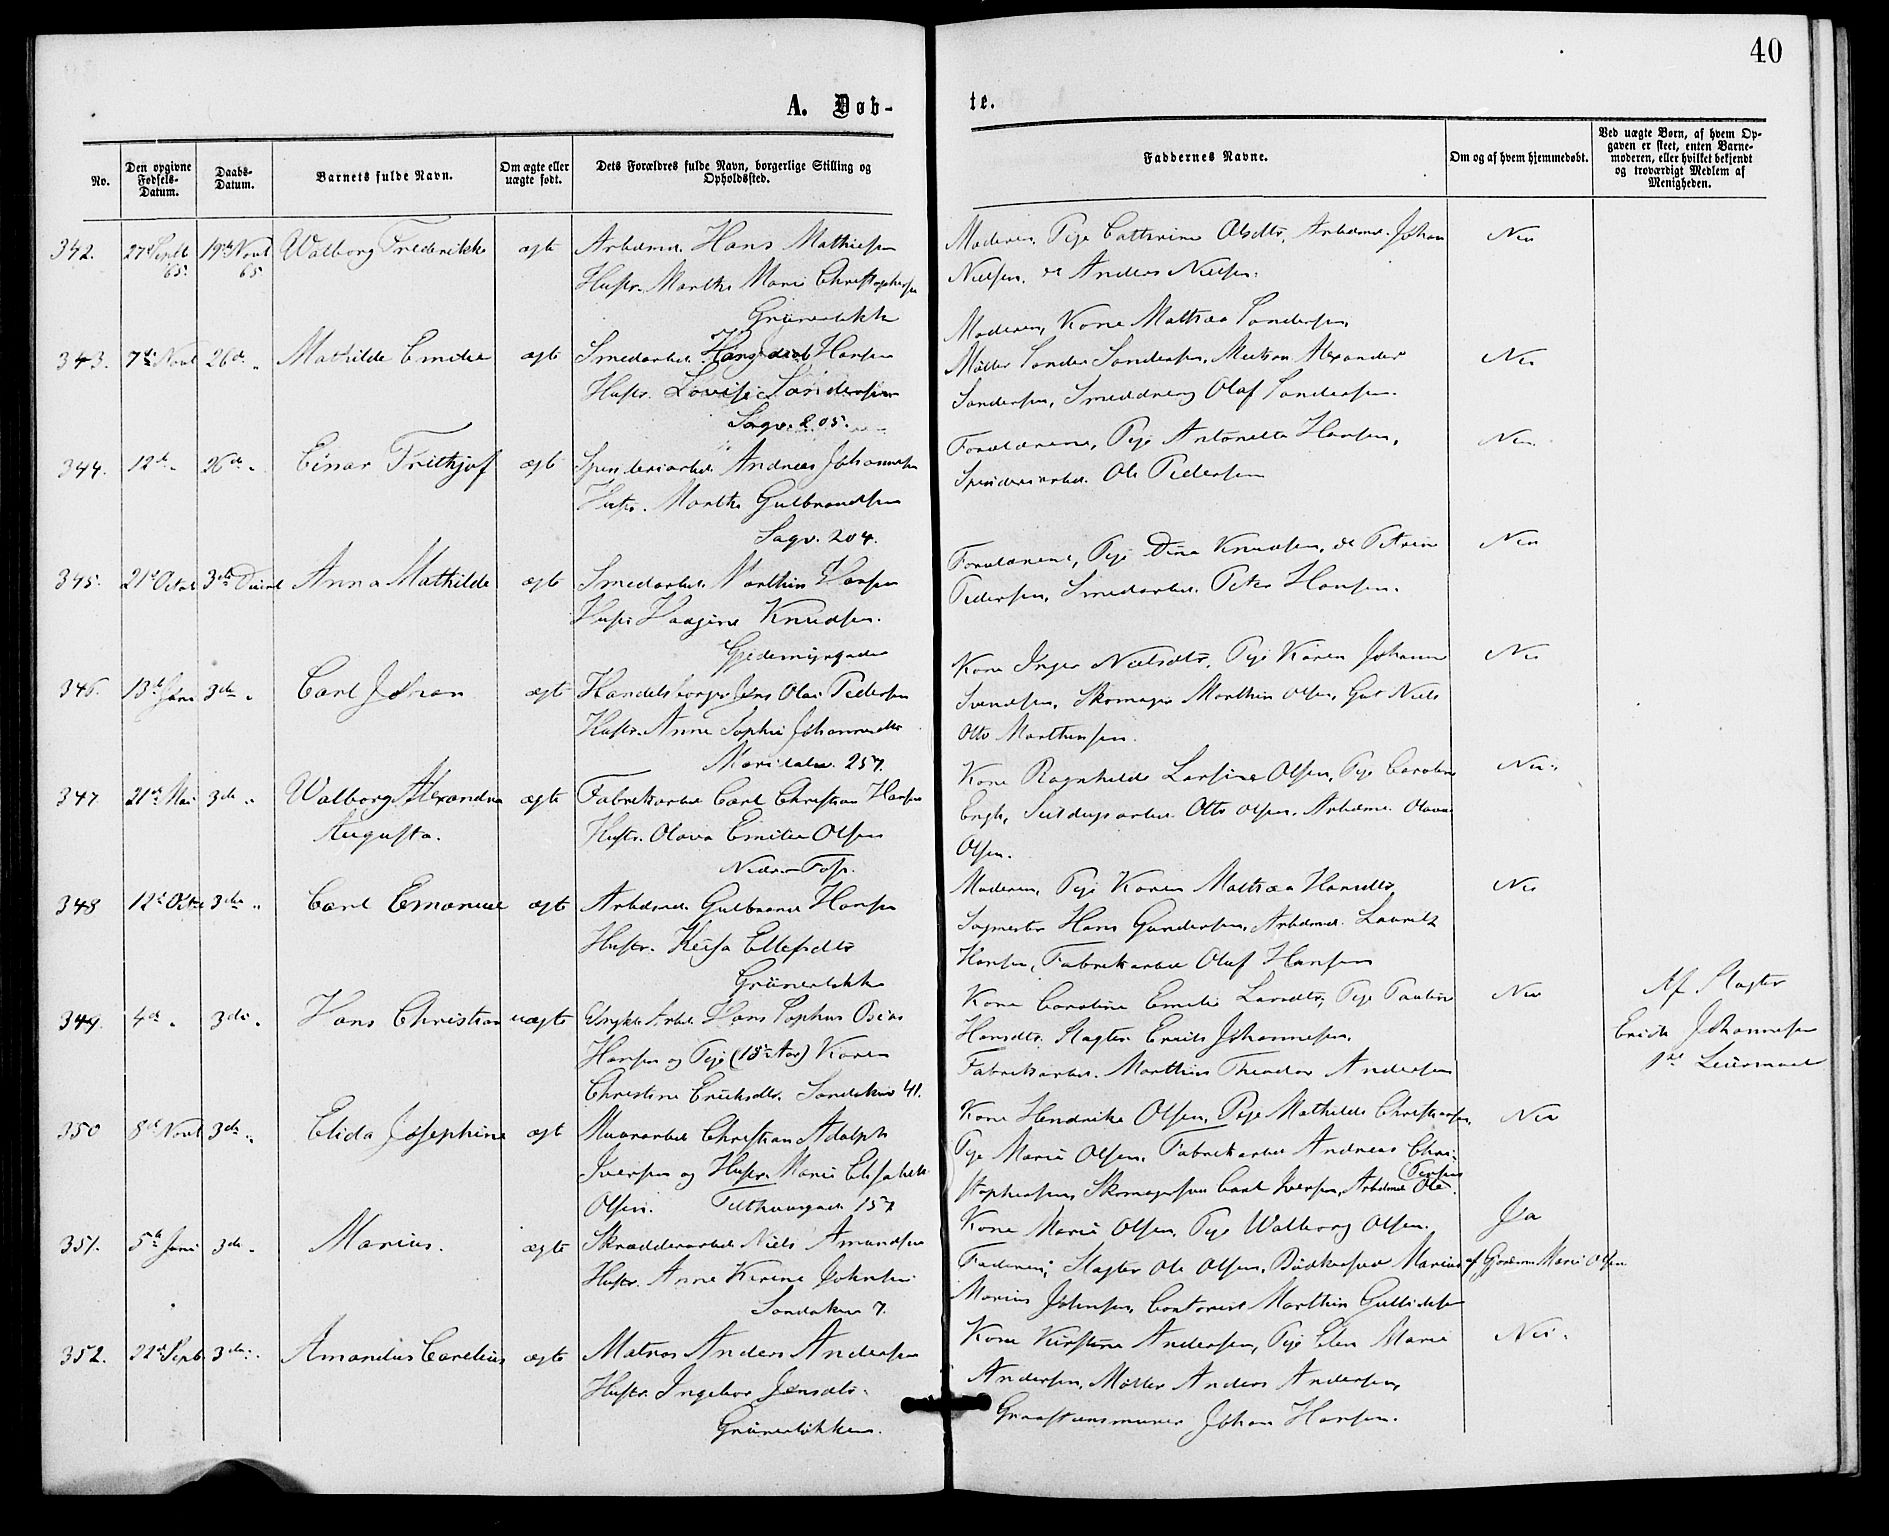 40
A. Døb-
te.
No.
Den opgivne Fødsels-Datum.
Daabs-Datum.
Barnets fulde Navn.
Om ægte eller uægte født.
Dets Forældres fulde Navn, borgerlige Stilling og Opholdssted.
Faddernes Navne.
Om og af hvem hjemmedøbt.
Ved uægte Børn, af hvem Opgaven er skeet, enten Barnemoderen, eller hvilket bekjendt og troværdigt Medlem af Menigheden.
342. 27d Septb 65. 19de Novb 65 Walborg Fredrikke ægt Arbdmd. Hans Mathiesen
Hustr. Marthe Marie Christophersen
Grünerløkke
Moderen, Pige Cathrine Olsdtr, Arbdmd. Johan Nei
Nielsen, d Anders Nielsen.
343. 7de Novb 26d „ Mathilde Emilie ægt Smedarbd. Hans Jacob Hansen
Hustr. Lovise Sandersen
Sagv. 205.
Moderen, Kone Mathea Sandersen,
Møller Sander Sandersen, Matros Alexander Nei
Sandersen, Smeddreng Olaf Sandersen.
344. 12d „ 26de „ Einar Frithjof ægt Spinderiarbd. Andreas Johannesen
Hustr. Marthe Gulbrandsen
Sagv. 204.
Forældrene, Pige Antonette Hansen, Nei
Spinderiarbd. Ole Pedersen
345. 21d Octob 3de Decbr Anna Mathilde ægt Smedarbd. Marthin Hansen
Hustr Haagine Knudsen.
Gjedemyrsgaden
Forældrene, Pige Dina Knudsen, d Petrine Nei
Pedersen, Smedarbd. Peter Hansen.
346. 13d Juni 3de „ Carl Johan ægt Handelsborger Jens Olai Pedersen
Hustr. Anne Sophie Johannesdtr
Maridalsv. 257.
Kone Inger Nielsdtr, Pige Karen Johanne Nei
Svendsen, Skomager Marthin Olsen, Gut Niels
Otto Marthinsen.
347 21de Mai 3de „ Walborg Alexandra ægte Fabrikarbd. Carl Christian Hansen
Augusta. Hustr. Olava Emilie Olsen
Nedre Foss.
Kone Ragnhilde Larsine Olsen, Pige Caroline Nei.
Engh, Seildugsarbd. Otto Olsen, Arbdmd. Olavus
Olsen.
348 12d Octb 3de „ Carl Emanuel ægt Arbdmd. Gulbrand Hansen
Hustr. Kaisa Ellefsdtr
Grünerløkke
Moderen, Pige Karen Mathea Hansdtr, Nei
Sagmester Hans Gundersen, Arbdmd. Lauritz
Hansen, Fabrikarbd Oluf Hansen
349. 4de „ 3de „ Hans Christian uægte Arbd. Hans Sophus Osias
Hansen og Pige (18 Aar) Karen
Christine Eriksdtr. Sandaker 41.
Kone Caroline Emilie Larsdtr, Pige Pauline Nei
Hansdtr, Slagter Erick Johannesen,
Fabrikarbd. Marthin Theodor Andersen
Af Slagter
Erick Johannesen
1ste Leiermaal
350 8de Novb 3de „ Elida Josephine ægt Murarbd Christian Adolph
Iversen og Hustr. Marie Elisabeth
Olsen. Telthusgad. 157
Kone Hendrikke Olsen, Pige Mathilde Christiansen, Nei
Pige Marie Olsen, Fabrikarbd Andreas Chri-
stophersen, Skomagersvd Carl Iversen, Arbdmd Ole
Iversen
351. 5te Juni 3de „ Marius. ægte Skrædderarbd. Niels Amundsen
Hustr. Anne Kirine Johnsen
Sandaker 7.
Kone Marie Olsen, Pige Walborg Olsen. Ja
Faderen, Slagter Ole Olsen, Bødkersvd Marius af Gjordem Marie Olsen
Marius Johnsen, Contorist Marthin Gulliksen
352. 22d Septb 3de „ Amandus Carelius ægte Matros Anders Andersen
Hustr. Ingebor Jensdtr.
Grünerløkken.
Kone Kirstine Andersen, Pige Elen Marie Nei.
Andersen, Møller Anders Andersen,
Graastensmurer Johan Hansen.